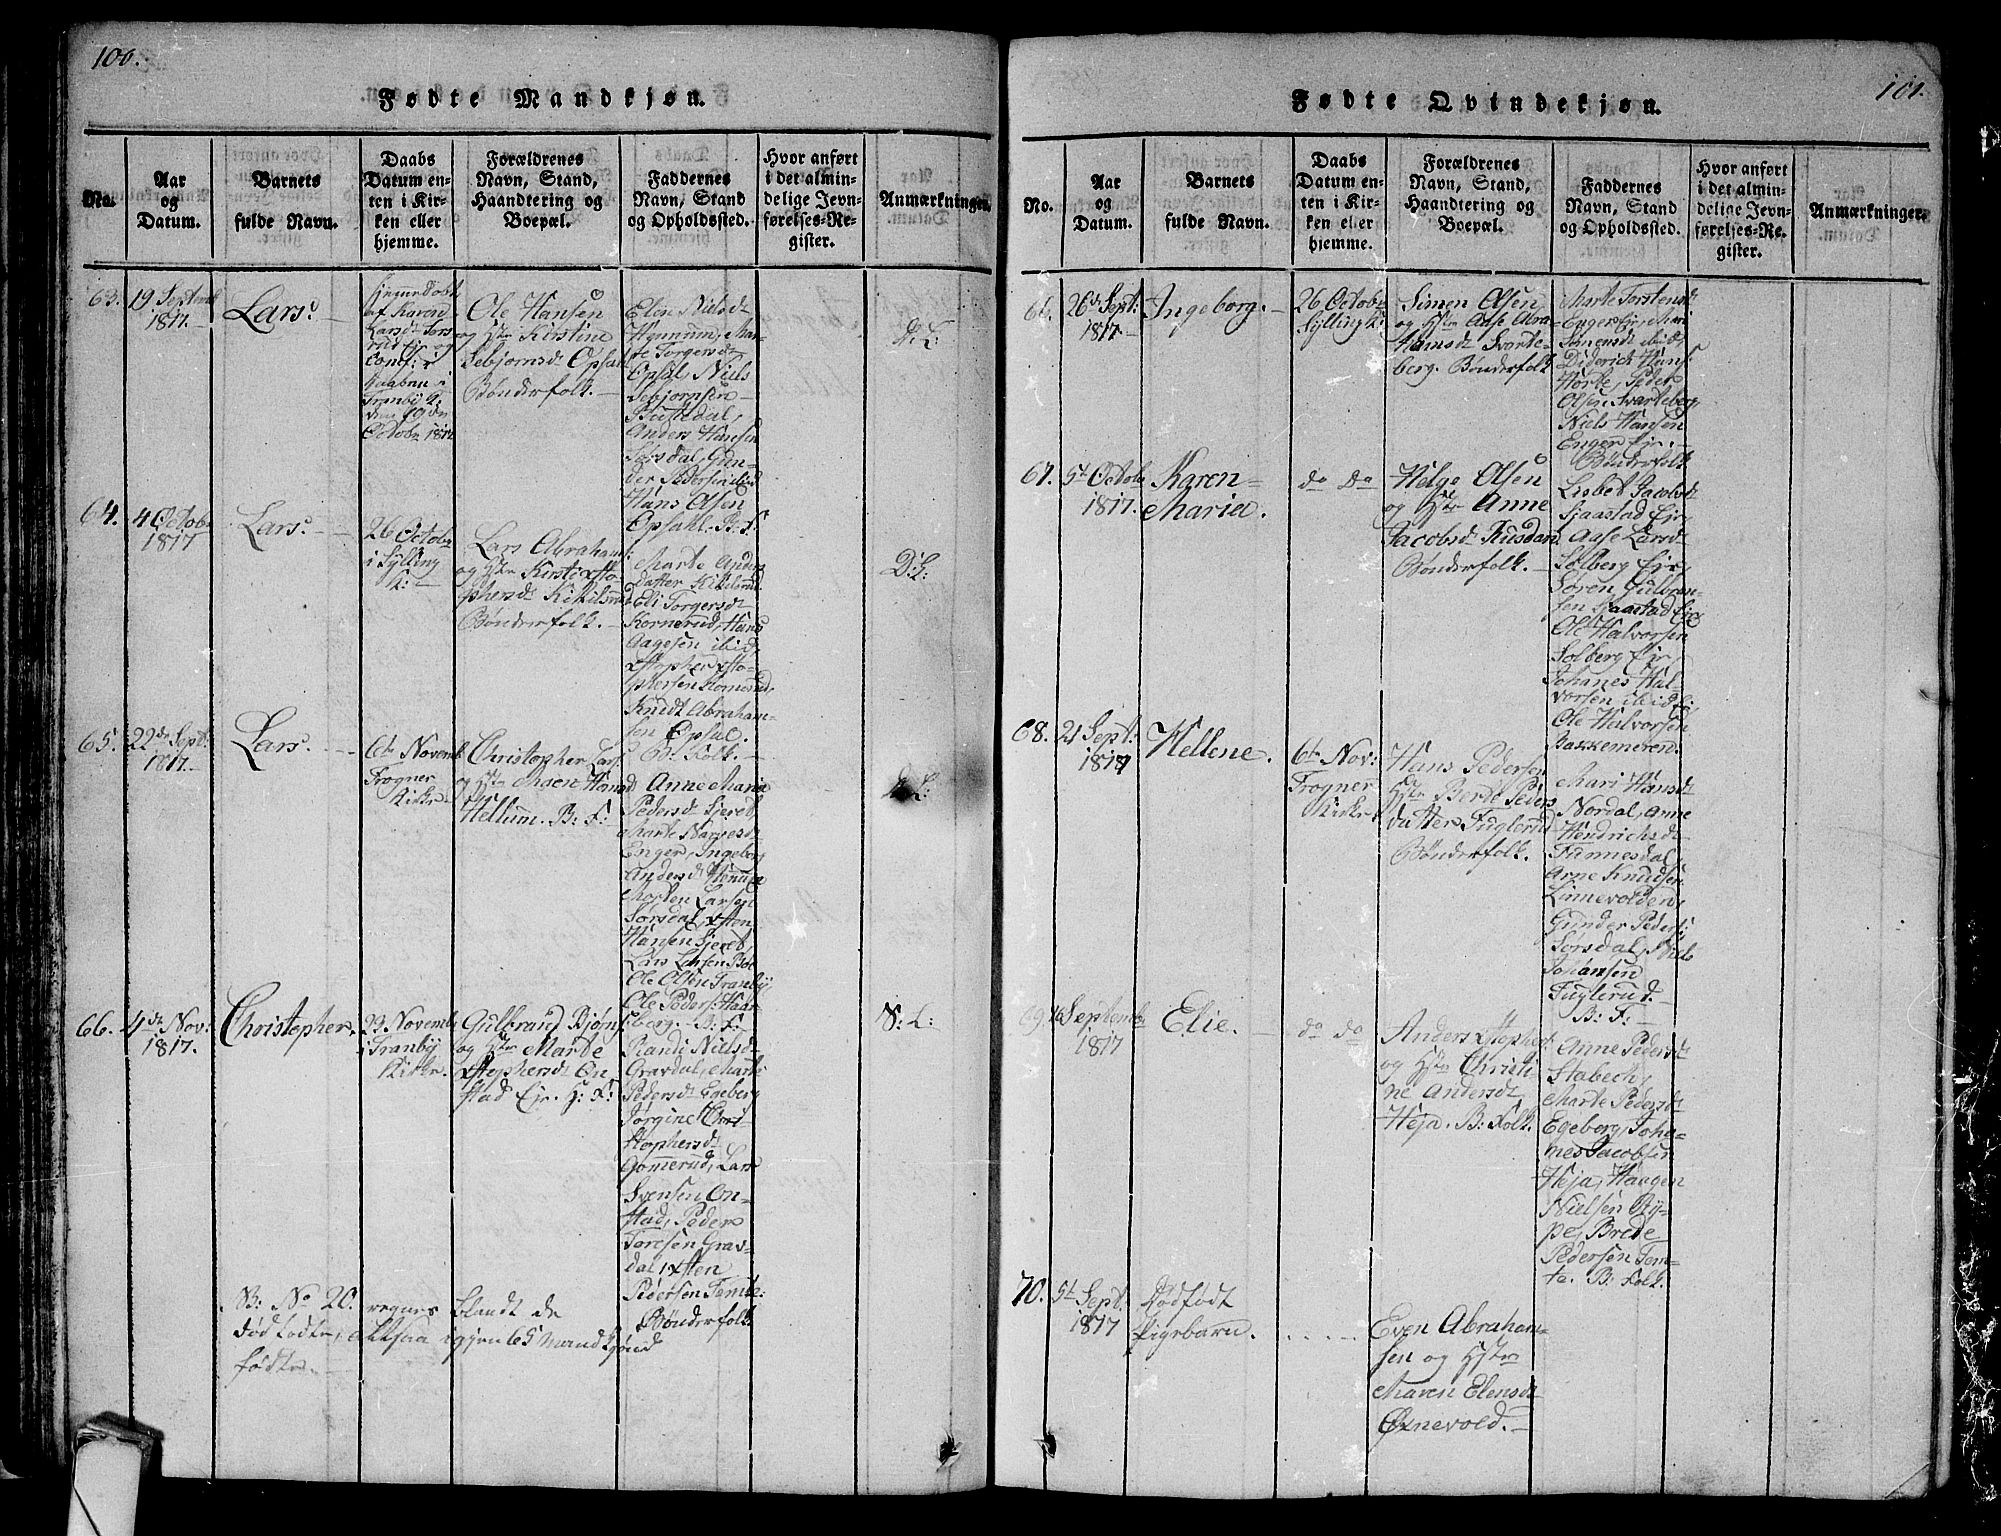 100.
Fødte Mandkjøn.
No.
Aar
og
Datum.
Barnets
fulde Navn.
Daabs
Datum en-
ten i Kir-
ken eller
hjemme.
Forældrenes
Navn, Stand,
Haandtering og
Boepæl.
Faddernes
Navn, Stand
og Opholdssted.
Hvor anført
i det almin-
delige Jevn-
førelses-Re-
gister.
Anmærkninger.
63.
19 Septemb
1817.
Lars.
hjemmedøbt
af Karen
Larsdt
og
Conf:
i
Tranby K:
den 19de
Octobr 1817
Ole Hansen
og Hstr Kirstine
Sebjørnsdt Opsal
Bønderfolk.
Elin Nielsd
Hennum, Mar-
te Torgersdt
Opsal, Niels
Sebjørnsen
Anders Hansen
Sørsdal, Gun-
der Pedersen ibid
Hans Olsen
Opsahl. B. F.
64.
4 Octob
1817
Lars.
26 Octobr
i Sylling
K:
Lars Abrahams:
og Hstr Kirsti xsto-
phersdt
Bønderfolk.
Marte Anders
datter
Eli Torgersdt
Kornerud, Hans
Aagesen ibid,
xstopher xsto-
phersen
Knudt Abraham-
sen Opsal
B: Folk.
D: L:
65.
22de Sept:
1817.
Lars.
6te Novemb
Frogner
Kirke
Christopher Lars
og Hstr Maren
Hellum. B: F:
Anne Maria
Pedersdt Gjeret,
Marte
Enger, Ingebor
Andersdt Hennum
Morten Larsen
Sørsdal, xsten
Hansen Gjeret,
Lars Larsen
Ole Olsen Tranby,
Ole Peders:
berg. B: F:
66.
4de Nov:
1817.
Christopher.
23 Novemb
i Tranby
Kirke.
Gulbrand Bjørns
og Hstr Marte
xstophersdt On-
stad Ejr. H: F:
Randi Nielsd
Gravdal, Marte
Pedersdt Egeberg
Jørgine Chri-
stophersdt
Gomerud, Lars
Svensen On-
stad, Peder
Toresen Grav-
dal, xsten
Pedersen Temte:
Bønderfolk.
N: L:
N: No 20. regnes blandt de
dødfødte, altsaa igjen 65 mandkjønd
fødte.
101.
Fødte Qvindekjøn.
No.
Aar
og
Datum.
Barnets
fulde Navn.
Daabs
Datum en-
ten i Kir-
ken eller
hjemme.
Forældrenes
Navn, Stand,
Haandtering og
Boepæl.
Faddernes
Navn, Stand
og Opholdssted.
Hvor anført
i det almin-
delige Jevn-
førelses-Re-
gister.
Anmærkninger.
66.
26de Sept:
1817.
Ingeborg.
26 Octobr
Sylling K:
Simen Olsen
og Hstr Aase Abra-
hamsdt Svarte-
berg. Bønderfolk
Marte Torstensdt
Enger Ejr, Mari
Simensdt ibid
Diderich Hans:
Horte, Peder
Olsen Svarteberg,
Niels Hansen
Enger Ejr:
Bønderfolk
67.
5t Octobr
1817.
Karen
Maria.
do do
Helge Olsen
og Hstr Anne
Jacobsdt Rusdan
Bønderfolk.
Lisbet Jacobsdt
Sjaastad Ejr,
Aase Larsd
Solberg Ejr,
Søren Gulbran-
sen Sjaastad Ejr
Ole Halvorsen
Solberg Ejr,
Johanes Hal-
vorsen ibid
Ole Halvorsen
Bakkemeren.
68.
21 Sept:
1817
Hellene.
6te Nov:
Frogner
Kirke
Hans Pedersen
Hstr Berte Peders
datter Fuglerud
Bønderfolk.
Mari Hansdt
Nordal, Anne
Hendrichsdt
Tannesdal,
Arne Knudsen
Linnevolden,
Gunder Peders:
Sørsdal, Niels
Johansen
Fuglerud.
B: F:
69.
16 Septemb
1817
Elie.
do do
Anders xstophers:
og Hstr Christi-
ne Andersdt
Heja. B: Folk.
Anne Pedersdt
Stabech,
Marte Pedersdt
Egeberg, Joha-
nes Jacobsen
Heja, Haagen
Nielsen Ry-
pe, Brede
Pedersen Tem-
te. B: Folk.
70.
5t Sept.
1817
Dødfødt
Pigebarn.
Even Abraham-
sen og Hstr
Maren Elensdt
Øxnevold.